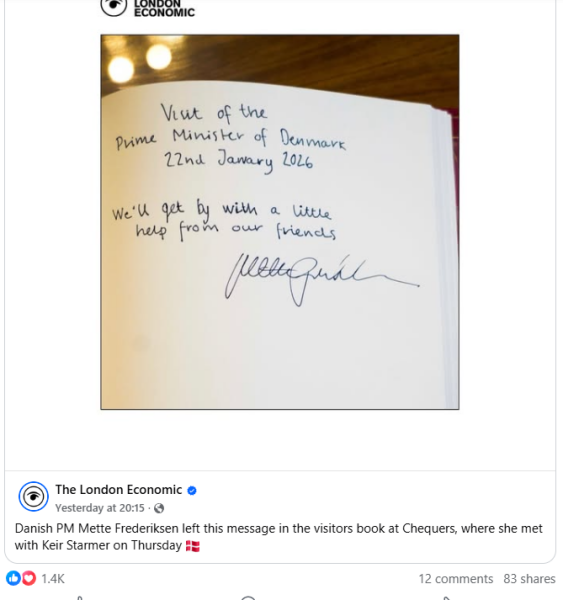 LONDON
ECONOMIC
Visit of the
Prime Minister of Denmark
22nd January 2026
We'll get by with a little
help from our friends
The London Economic
Yesterday at 20:15 ·
Danish PM Mette Frederiksen left this message in the visitors book at Chequers, where she met
with Keir Starmer on Thursday 🇩🇰
1.4K
12 comments 83 shares